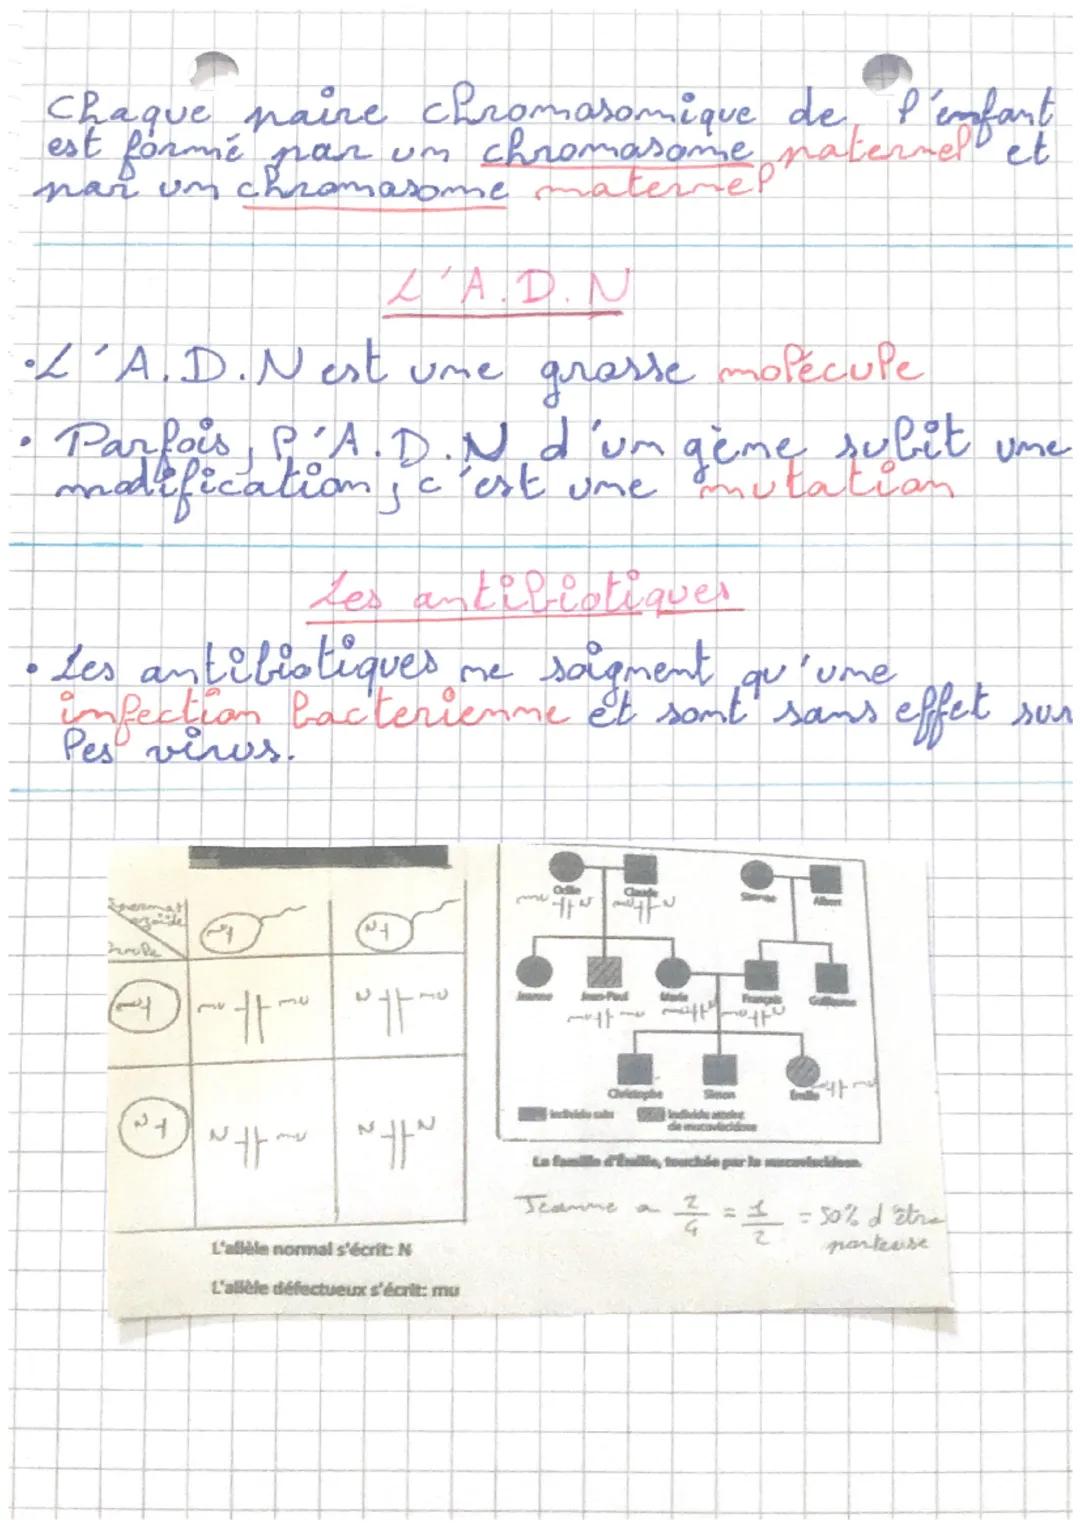 Chaque paire chromosomique de l'enfant
est formé par un chromosome paternel et
par un chromosome maternel
L'A.D.N
• L'A.D.N est une grosse molécule
• Parfois, l'A.D.N d'un gène subit une
modification ; c'est une mutation
Les antibiotiques
• Les antibiotiques ne soignent qu'une
infection bacterienne et sont sans effet sur
les virus.
Odile Claude Simone Albert
mu N mu N
Jeanne Jean-Paul Marie François Guillaume
mu mu mu N mu N
Christophe Simon Émilie
mu mu
individu sain
individu atteint
de mucoviscidose
La famille d'Émilie, touchée par la mucoviscidose.
Spermatozoïde
Ovule
mu N
mu mu mu N mu
N N mu N N
L'allèle normal s'écrit: N
L'allèle défectueux s'écrit: mu
Jeanne a 2/4 = 1/2 = 50% d'être
porteuse